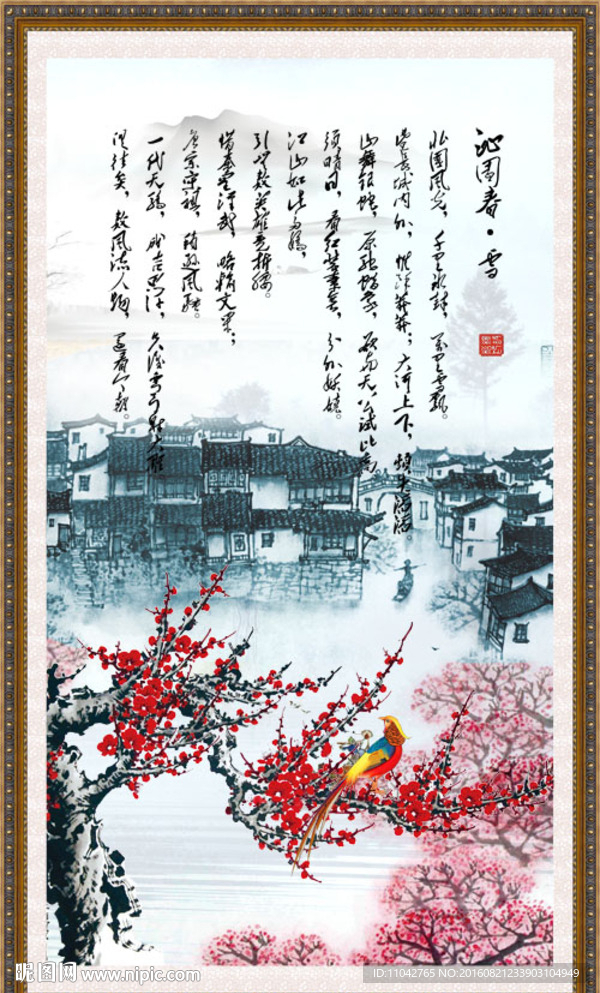 沁园春·雪
北国风光，千里冰封，万里雪飘。
望长城内外，惟余莽莽；大河上下，顿失滔滔。
山舞银蛇，原驰蜡象，欲与天公试比高
须晴日，看红装素裹，分外妖娆。
江山如此多娇，
引无数英雄竞折腰。
惜秦皇汉武，略输文采；
唐宗宋祖，稍逊风骚。
一代天骄，成吉思汗，只识弯弓射大雕
俱往矣，数风流人物，还看今朝。
昵图网 www.nipic.com
ID:11042765 NO:20160821233903104949